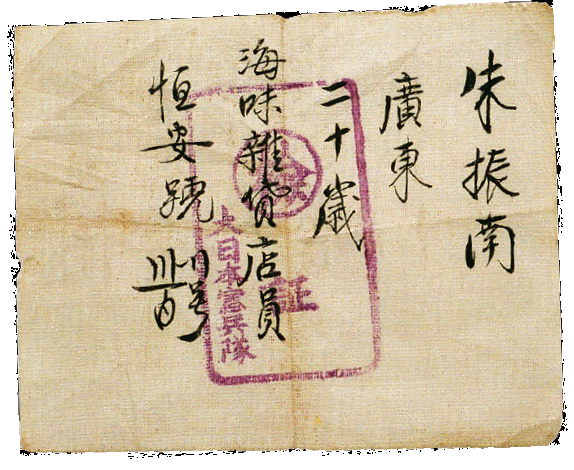 朱振南
廣東
二十歲
海味雜貨店員
恒安號
証
大日本憲兵隊